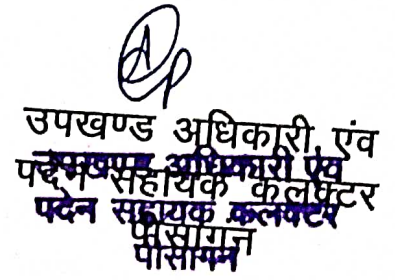 उपखण्ड अधिकारी एंव
उपखण्ड अधिकारी एंव
पदेन सहायक कलक्टर
पदेन सहायक कलक्टर
पीसांगन
पीसांगन